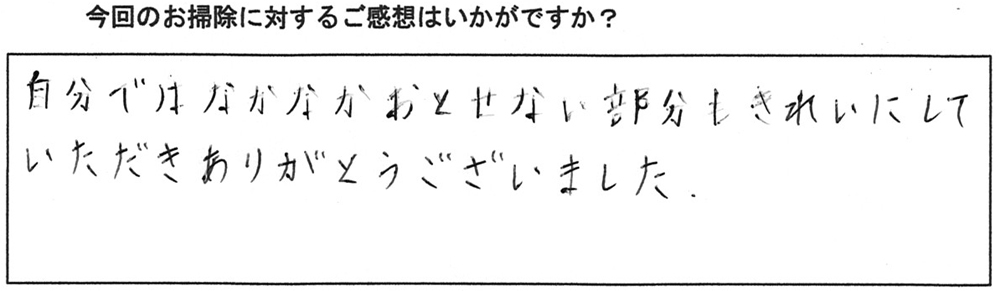 今回のお掃除に対するご感想はいかがですか？
自分ではなかなかおとせない部分もきれいにして
いただきありがとうございました.